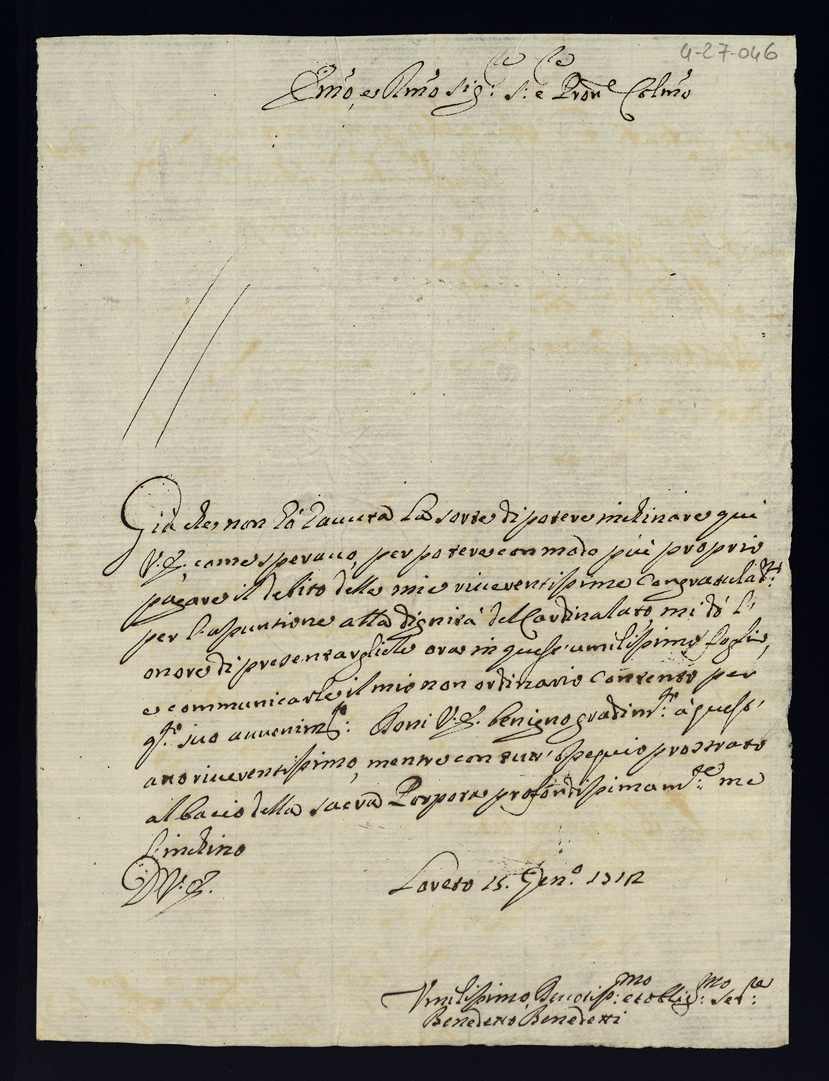 4-27-046
Emo, e Rmo Sig.re S.e e Pron.e Colmo
Già che non hà hauuta la sorte di potere inchinare qui
V.E., come speravo, per potere con modo più proprio
pagare il debito delle mie riverentissime congratulat.ni
per l'assuntione alla dignità del Cardinalato, mi dò l'
onore di presentargliele ora in quest'umilissimo foglio,
e communicarle il mio non ordinario contento per
q.sto suo avvenim.to: Doni V.E. benigno gradim.to à quest'
atto riverentissimo, mentre con tutt'ossequio prostrato
al bacio della sacra Porpora profondissimam.te me
l'inchino
D V.E.
Loreto 15. Gen.o 1712
Vmilissimo, Devotiss.mo et oblig.mo Ser.re
Benedetto Benedetti